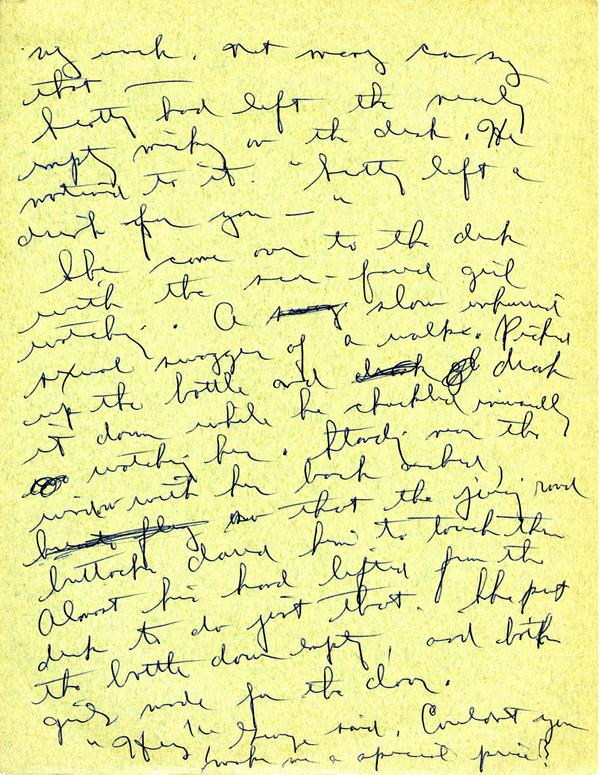 my work. Not many can say
that —
Scotty had left the nearly
empty mickey on the desk. He
motioned to it "Scotty left a
drink for you — "
She came over to the desk
with the scar-faced girl
watching. A slow inherent
sexual swagger of a walk. Picked
up the bottle and drank
it down while he chuckled inwardly
watching her. Standing near the
window with her back arched,
so that the jutting round
buttocks dared him to touch them
Almost his hand lifted from the
desk to do just that. She put
the bottle down empty, and both
girls made for the door.
"Hey" George said. Couldn't you
make me a special price?